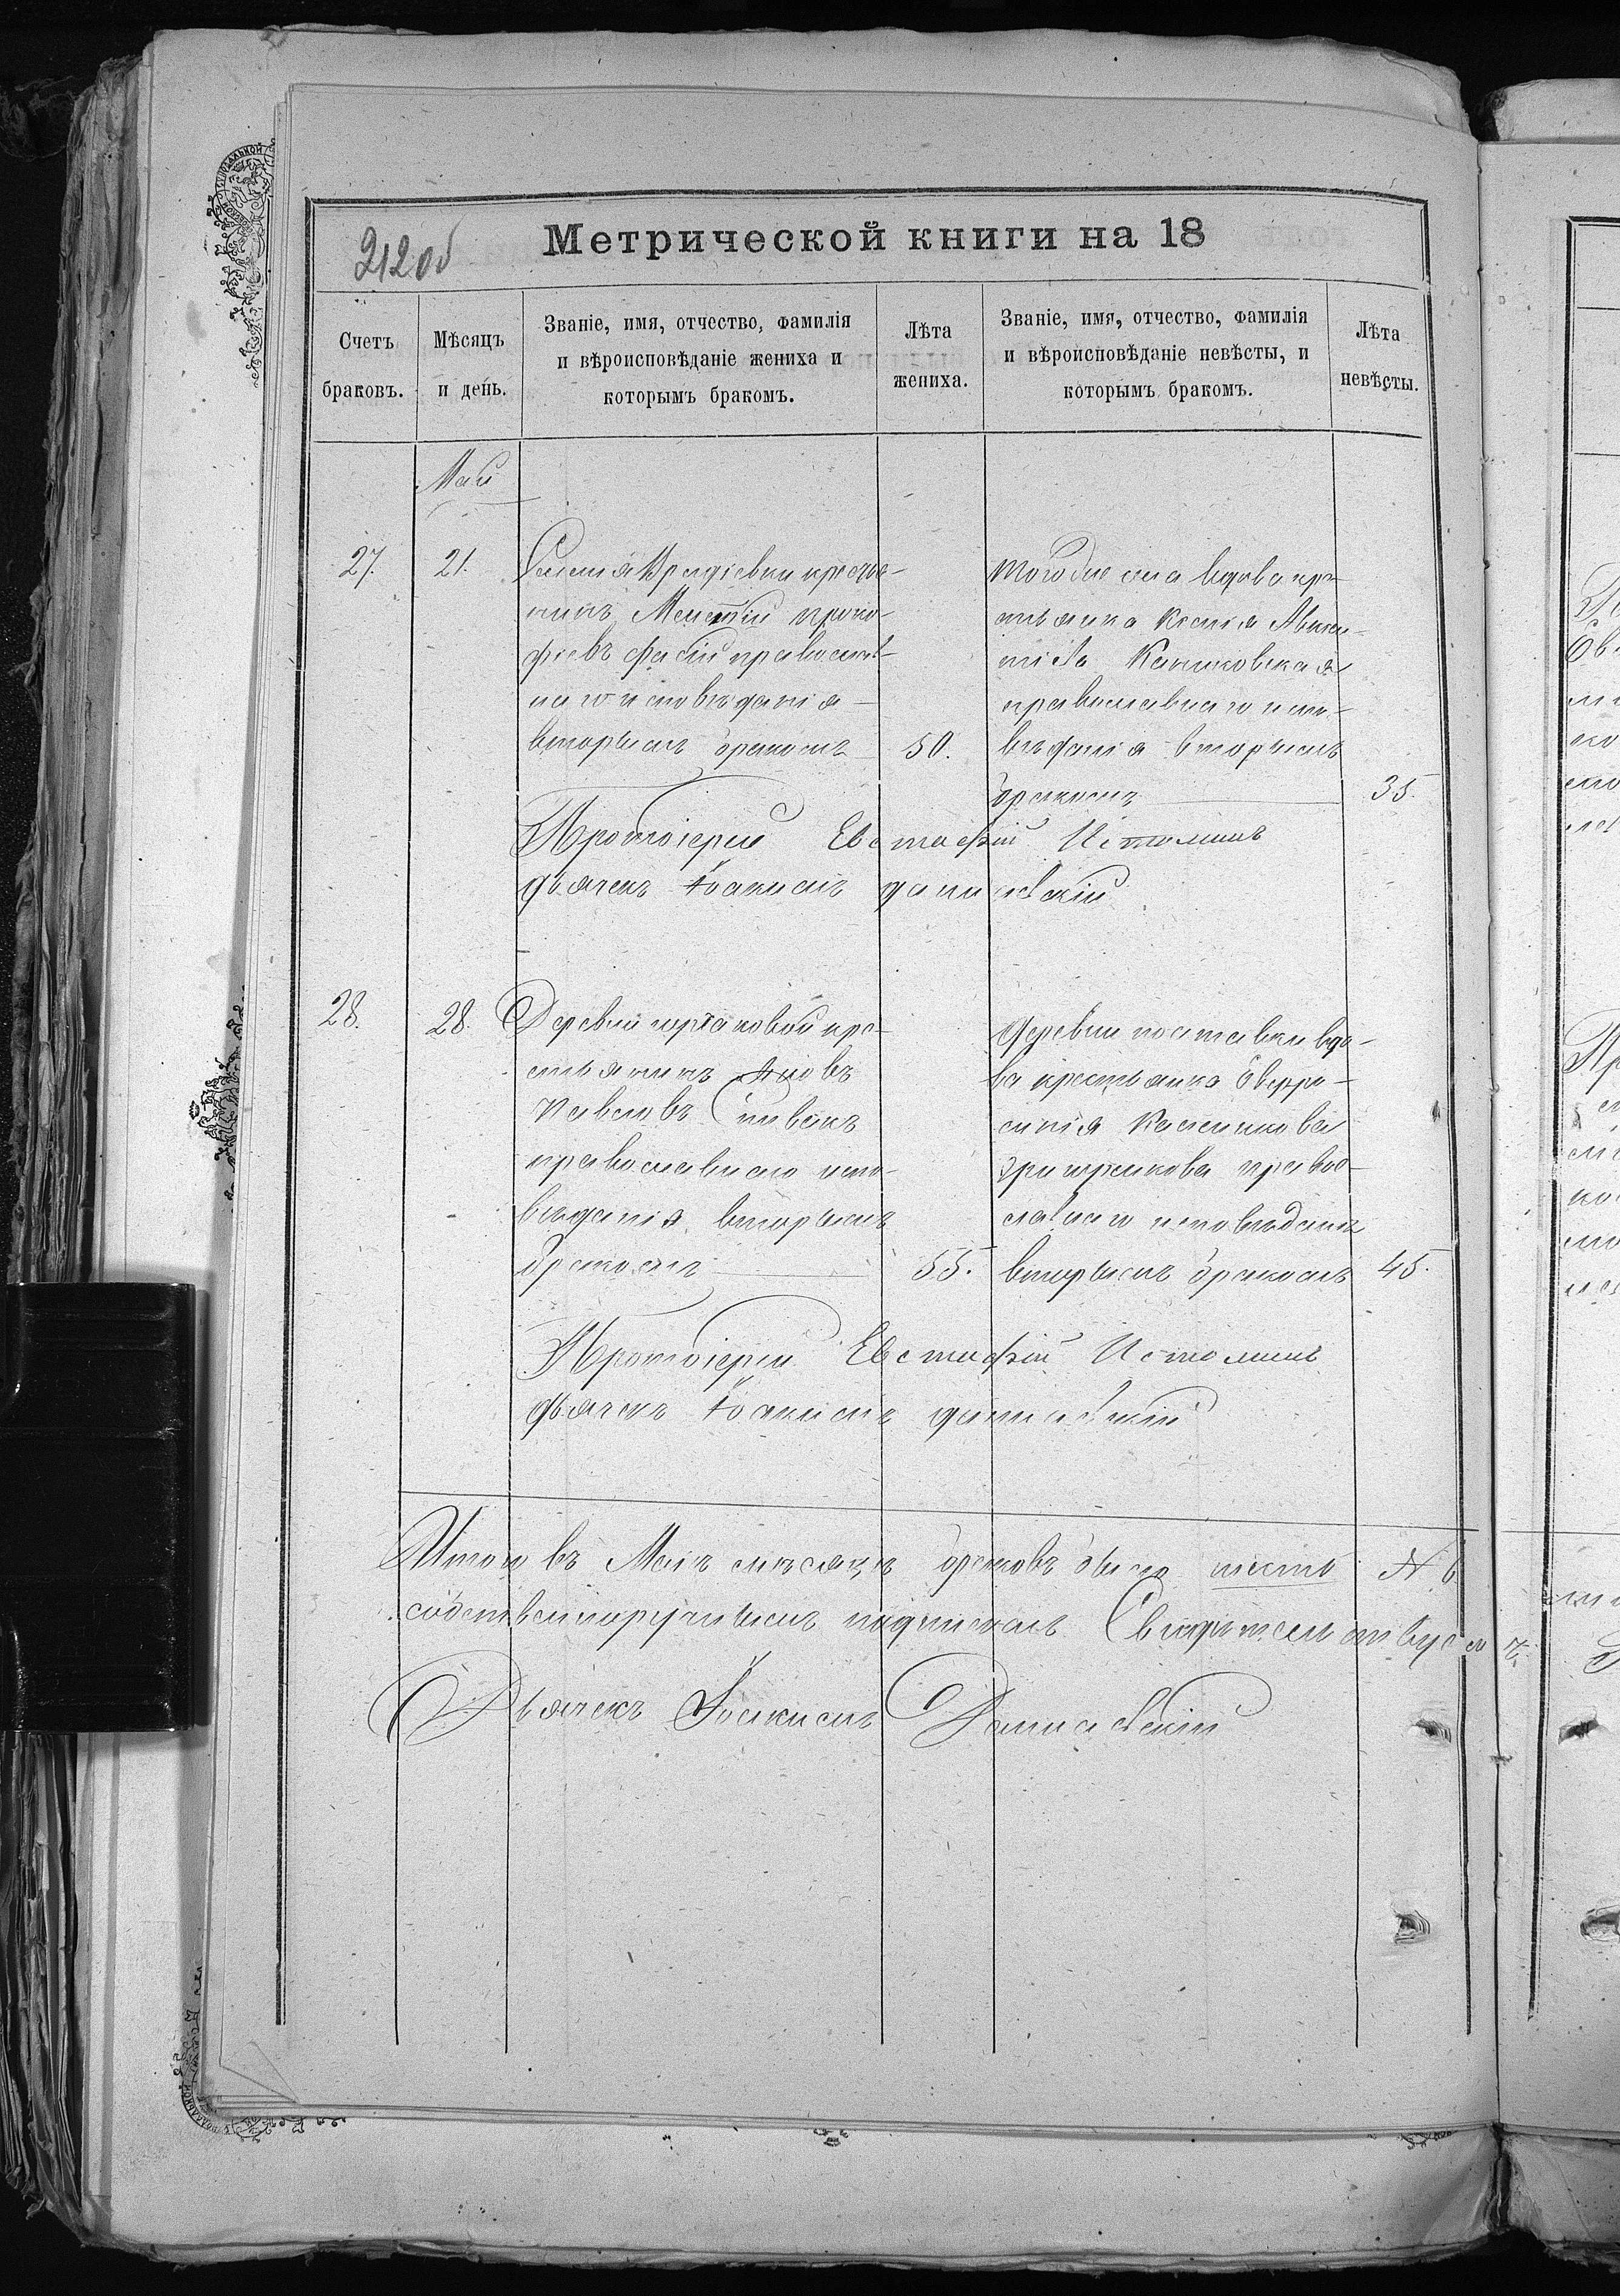 212об
Метрической книги на 18
Счетъ браковъ.
Мѣсяцъ и день.
Званіе, имя, отчество, фамилія
и вѣроисповѣданіе жениха и
которымъ бракомъ.
Лѣта жениха.
Званіе, имя, отчество, фамилія
и вѣроисповѣданіе невѣсты, и
которымъ бракомъ.
Лѣта невѣсты.
Май
27. 21.
Селенія Врадіевки кресть-
нинъ Мелетій проко-
фіевъ православ-
наго исповѣданія
вторымъ бракомъ 50.
Тогоже села вдова кре-
стьянка Ксенія
православнаго испо-
вѣданія вторымъ
бракомъ 35.
Протоіерей Евстафій Истоминъ
дьячекъ Іоакимъ даниевскій
28. 28.
Деревни кре-
стьянинъ Яковъ
Павловъ Спивакъ
православнаго испо-
вѣданія вторымъ
бракомъ 55.
деревни вдо-
ва крестьянка Евфро-
синія
право-
славнаго исповѣданія
вторымъ бракомъ 45.
Протоіерей Евстафій Истоминъ
дьячекъ Іоакимъ даниевскій
Итого въ Маѣ мѣсяцѣ браковъ было шесть № 6
собственоручнымъ подписомъ Свидѣтельствуемъ
Дьячекъ Іоакимъ Даниевскій